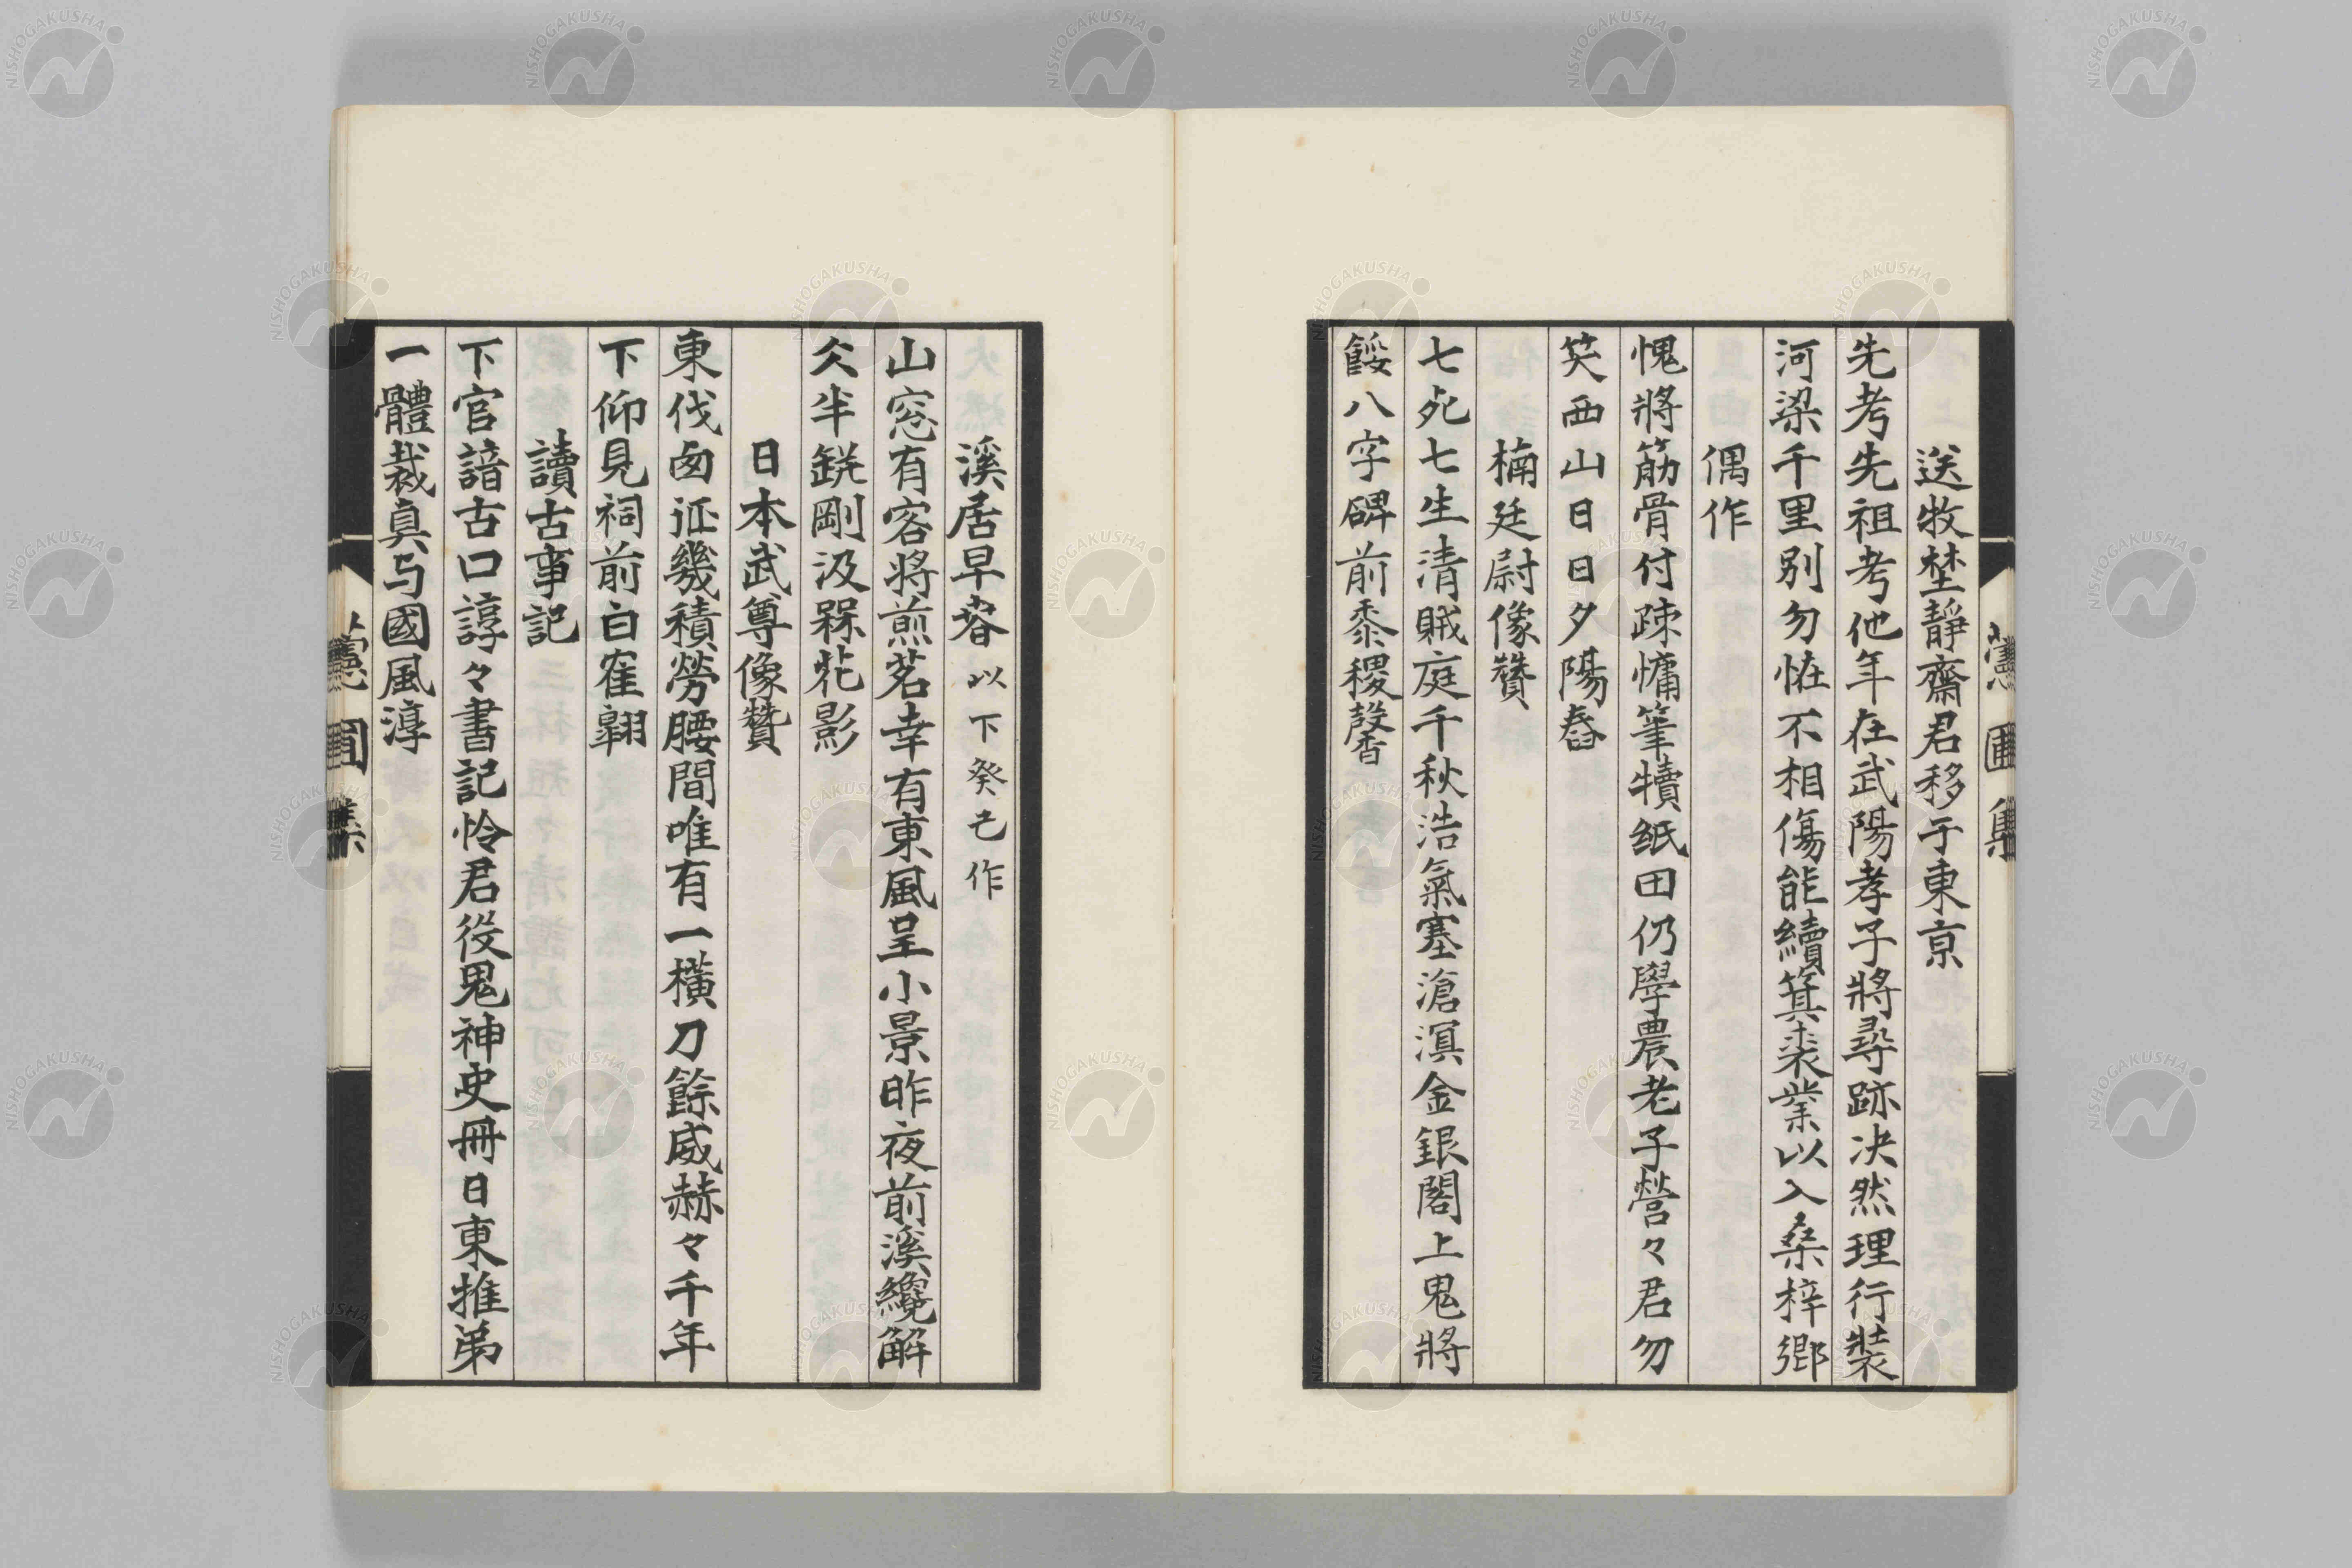 送牧埜靜齋君移于東京
先考先祖考他年在武陽孝子將尋跡决然理行裝
河梁千里別勿恠不相傷能續箕裘業以入桑梓鄉
偶作
愧將筋骨付疎慵筆犢紙田仍學農老子營々君勿
笑西山日日夕陽舂
楠廷尉像贊
七死七生清賊庭千秋浩氣塞滄溟金銀閣上鬼將
餒八字碑前黍稷馨
溪居早春以下癸巳作
山窓有客將煎茗幸有東風呈小景昨夜前溪纔解
仌半甁剛汲槑花影
日本武尊像贊
東伐西征幾積勞腰間唯有一橫刀餘威赫々千年
下仰見祠前白隺翶
讀古事記
下官諳古口諄々書記怜君役鬼神史冊日東推弟
一體裁真与國風淳
圃集
NISHOGAKUSHA